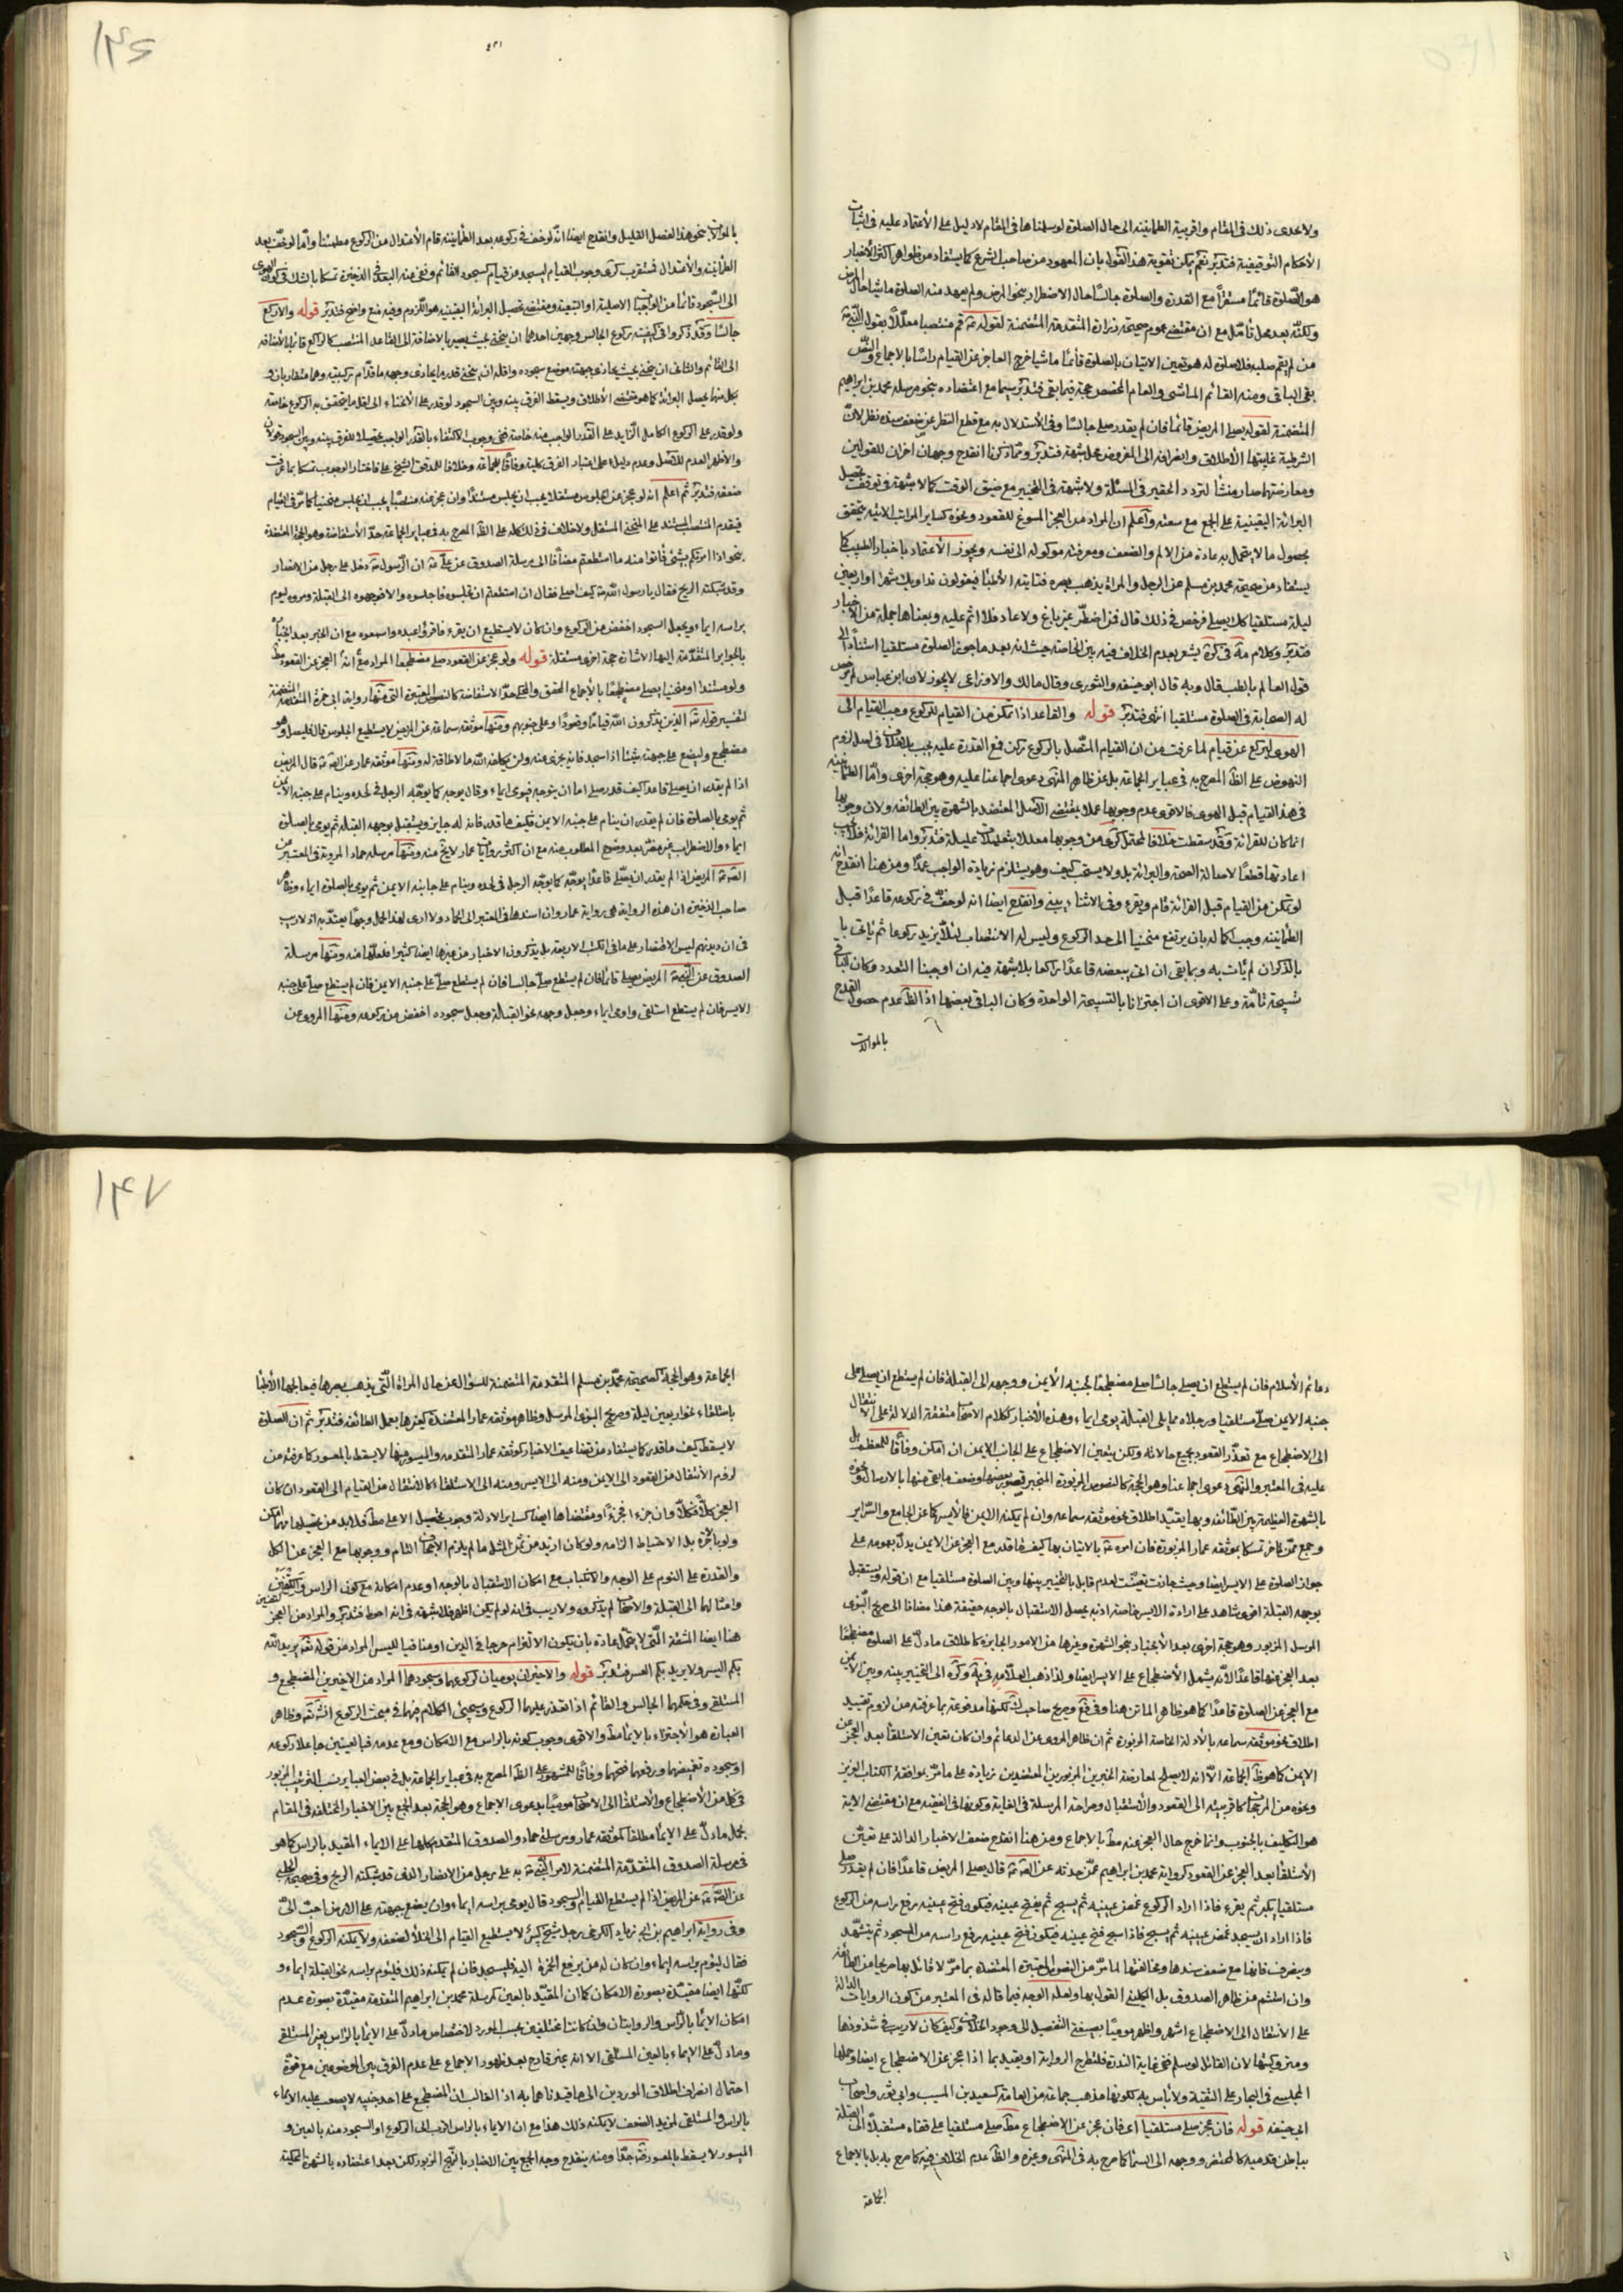 ولا يجدى ذلك فى المقام واقربية الطمانينة الى حال الصلوة لو سلمناها فى المقام لا دليل على الأعتماد عليه فى اثبات
الأحكام التوقيفية فتدبر نعم يمكن تقوية هذا القول بان المعهود من صاحب الشرع كما يستفاد من ظواهر اكثر الأخبار
هو الصلوة قائما مستقرا مع القدرة والصلوة جالسا حال الاضطرار بنحو المرض ولم يعهد منه الصلوة ماشيا حال المرض
ولكنه بعد محل تأمل مع ان مقتضى عموم صحيحة زرارة المتقدمة المتضمنة لقوله قم منتصبا معللا بقول النبى
من لم يقم صلبه فلا صلوة له هو تعين الاتيان بالصلوة قائما ماشيا خرج العاجز عن القيام راسا بالاجماع والنص
بقى الباقى ومنه القائم الماشى والعام المخصص حجة فيما بقى فتدبر سيما مع اعتضاده بنحو مرسلة محمد بن ابراهيم
المتضمنة لقوله يصلى المريض قائما فان لم يقدر صلى جالسا وفى الأستدلال به مع قطع النظر عن ضعف سنده نظر لانّ
الشرطية غايتها الأطلاق وانصرافه الى المفروض محل شبهة فتدبر ومما ذكرنا انقدح وجهان اخران للقولين
ومعارضتها صار منشأ لتردد الحقير فى المسئلة ولا شبهة فى التخيير مع ضيق الوقت كما لا شبهة فى توقف تحصيل
البرائة اليقينية على الجمع مع سعته واعلم ان المراد من العجز المسوغ للقعود ونحوه كساير المراتب الاتية يتحقق
بحصول ما لا يتحمل به عادة من الالم والضعف ومعرفته موكولة الى نفسه ويجوز الأعتماد باخبار الطبيب كما
يستفاد من صحيحة محمد بن مسلم عن الرجل والمراة يذهب بصره فتاتيه الأطبا فيقولون نداويك شهرا او اربعين
ليلة مستلقيا كذلك يصلى فرخص فى ذلك قال فمن اضطر غير باغ ولا عاد فلا اثم عليه وبمعناها جملة من الاخبار
فتدبر وكلام مه فى كره يشعر بعدم الخلاف فيه بين الخاصة حيث انه بعد ما جوز الصلوة مستلقيا استنادا الى
قول العالم بالطب قال وبه قال ابو حنيفة والثورى وقال مالك والاوزاعى لا يجوز لان ابن عباس لم يرخص
له الصحابة فى الصلوة مستلقيا انتهى فتدبر قوله والقاعد اذا تمكن من القيام للركوع وجب القيام الى
الهوى ليركع عن قيام لما عرفت من ان القيام المتصل بالركوع ركن فمع القدرة عليه يجب بلا خلاف فى اصل لزوم
النهوض على الظ المصرح به فى عباير الجماعة بل عن ظاهر المنتهى دعوى اجماعنا عليه وهو حجة اخرى وامّا الطمانينة
فى هذا القيام قبل الهوى فالاقوى عدم وجوبها عملا بمقتضى الأصل المعتضد بالشهرة بين الطائفة ولان وجوبها
انما كان للقرائة وقد سقطت خلافا لمحتمل كرى من وجوبها معللا بتعليلات عليلة فتدبر واما القرائة فلا يجب
اعادتها قطعا لاصالة الصحة والبرائة بل ولا يستحب كيف وهو يستلزم زيادة الواجب عمدا ومن هنا انقدح انه
لو تمكن من القيام قبل القرائة قام ويقرء وفى الاثناء يبنى وانقدح ايضا انه لو خف فى ركوعه قاعدا قبل
الطمانينة وجب اكماله بان يرتفع منحنيا الى حد الراكع وليس له الانتصاب لئلا يزيد ركوعا ثم ياتى با
بالذكر ان لم يأت به وبما بقى ان اتى ببعضه قاعدا راكعا بلا شبهة فيه ان اوجبنا التعدد وكان الباقى
تسبيحة تامّة وعلى الاقوى ان اجتزانا بالتسبيحة الواحدة وكان الباقى بعضها اذ الظ عدم حصول القدح
بالموالات
١٤٦
بالموالات بنحو هذا الفصل القليل وانقدح ايضا انه لو خف فى ركوعه بعد الطمانينة قام الأعتدال من الركوع مطمئنا وامّا لو خف بعد
الطمانينة والأعتدال فستقرب كرى وجوب القيام ليسجد عن قيام كسجود القائم ونفى عنه البعد فى الذخيرة تمسكا بالشك فى كون الهوى
الى السجود قائما من الواجبات الاصلية او التبعية ومقتضى تحصيل البرائة اليقينية هو اللزوم وفيه منع واضح فتدبر قوله والا ركع
جالسا وقد ذكروا فى كيفية ركوع الجالس وجهين احدهما ان ينحنى بحيث يصير بالاضافة الى القاعد المنتصب كالراكع قائما بالأضافة
الى القائم والثانى ان ينحنى بحيث يحاذى جبهته موضع سجوده واقله ان ينحنى قدر ما يحاذى وجهه ما قدام ركبتيه وهما متقاربان و
بكل منهما يحصل البرائة كما هو مقتضى الأطلاق ويسقط الفرق بينه وبين السجود لو قدر على الأنحناء الى اقل ما يتحقق به الركوع خاصة
ولو قدر على الركوع الكامل الزايد على القدر الواجب منه خاصة ففى وجوب الاكتفاء بالقدر الواجب تحصيلا للفرق بينه وبين السجود قولان
والأظهر العدم للأصل وعدم دليل على اعتبار الفرق كلية وفاقا للجماعة وخلافا للمدقق الشيخ على فاختار الوجوب تمسكا بما عرفت
ضعفه فتدبر ثم اعلم انه لو عجز عن الجلوس مستقلا يجب ان يجلس مستندا وان عجز عنه منتصبا يجب ان يجلس منحنيا كما مرّ فى القيام
فيقدم المنتصب المستند على المنحنى المستقل ولا خلاف فى ذلك كله على الظ المصرح به فى عباير الجماعة حدّ الأستفاضة وهو الحجة المعتضدة
بنحو اذا امرتكم بشئ فاتوا منه ما استطعتم مضافا الى مرسلة الصدوق عن على ان الرسول دخل على رجل من الانصار
وقد شبكته الريح فقال يا رسول الله كيف اصلى فقال ان استطعتم ان تجلسوه فاجلسوه والا فوجهوه الى القبلة ومروه ليوم
براسه ايماء ويجعل السجود اخفض من الركوع وان كان لا يستطيع ان يقرء فاقرؤا عنده واسمعوه مع ان الخبر بعد انجباره
بالجوابر المتقدمة اليها الاشارة حجة اخرى مستقلة قوله ولو عجز عن القعود صلى مضطجعا المراد مع انه العجز عن القعود مط
ولو مستندا او منحنيا يصلى مضطجعا بالأجماع المحقق والمحكى حدّ الاستفاضة كالنصوص المعتبرة التى منها رواية ابى حمزة المتقدمة المتضمنة
لتفسير قوله الذين يذكرون الله قياما وقعودا وعلى جنوبهم ومنها موثقة سماعة عن المريض لا يستطيع الجلوس قال فليصل وهو
مضطجع وليضع على جبهته شيئا اذا سجد فانه يجزى عنه ولن يكلفه الله ما لا طاقة له ومنها موثقة عمار عن الص قال المريض
اذا لم يقدر ان يصلى قاعدا كيف قدر صلى اما ان يتوجه فيومى ايماء وقال يوجه كما يوجّه الرجل فى لحده وينام على جنبه الأيمن
ثم يومى بالصلوة فان لم يقدر ان ينام على جنبه الايمن فكيف ما قدر فانه له جايز ويستقبل بوجهه القبلة ثم يومى بالصلوة
ايماء والاضطراب غير مضر بعد وضوح المطلوب منه مع ان اكثر روايات عمار لا يخ منه ومنها مرسلة حماد المروية فى المعتبر عن
الص المريض اذا لم يقدر ان يصلّى قاعدا يوجّه كما يوجّه الرجل فى لحده وينام على جانبه الايمن ثم يومى بالصلوة ايماء وظاهر
صاحب الذخيرة ان هذه الرواية هى رواية عمار وان اسندها فى المعتبر الى الحماد ولا ادرى لهذا الحمل وجها يعتدّ به اذ لا ريب
فى ان ديدنهم ليس الاختصار على ما فى الكتب الاربعة بل يذكرون الاخبار من غيرها ايضا كثيرا فلعلها منه ومنها مرسلة
الصدوق عن النبى المريض يصلى قائما فان لم يستطع صلّى جالسا فان لم يستطع صلّى على جنبه الايمن فان لم يستطع صلّى على جنبه
الايسر فان لم يستطع استلقى واومى ايماء وجعل وجهه نحو القبلة وجعل سجوده اخفض من ركوعه ومنها المروى عن
دعائم الأسلام فان لم يستطع ان يصلى جالسا صلى مضطجعا لجنبه الأيمن ووجهه الى القبلة فان لم يستطع ان يصلى على
جنبه الايمن صلّى مستلقيا ورجلاه مما يلى القبلة يومى ايماء وهذه الأخبار ككلام الاصحاب متفقة الدلالة على الانتقال
الى الاضطجاع مع تعذّر القعود بجميع حالاته ولكن يتعين الاضطجاع على الجانب الايمن ان امكن وفاقا للمعظم بل
عليه فى المعتبر والمنتهى دعوى اجماعنا وهو الحجة كالنصوص المزبورة المنجبر قصور بعضها وضعف ما بقى منها بالارسال ونحوه
بالشهرة العظيمة بين الطائفة وبها يقيّد اطلاق نحو موثقة سماعة وان لم يمكنه الايمن فالأيسر كما عن الجامع والسرائر
وجمع ممّن تاخر تمسكا بموثقة عمار المزبورة فان امره بالاتيان بها كيف ما قدر مع العجز عن الايمن يدل بعمومه على
جواز الصلوة على الايسر ايضا وحيث جازت تعيّنت لعدم قايل بالتخيير بينها وبين الصلوة مستلقيا مع ان قوله ويستقبل
بوجهه القبلة اقوى شاهد على ارادة الايسر خاصة اذ به يحصل الاستقبال بالوجه حقيقة هذا مضافا الى صريح النبوى
المرسل المزبور وهو حجة اخرى بعد الأنجبار بنحو الشهرة وغيرها من الامور الجابرة كاطلاق ما دلّ على الصلوة مضطجعا
بعد العجز عنها قاعدا لأنه يشمل الأضطجاع على الايسر ايضا ولذا ذهب العلّامة فى يه وكره الى التخيير بينه وبين الأيمن
مع العجز عن الصلوة قاعدا كما هو ظاهر الماتن هنا وفى فع وصريح صاحب ك لكنها مدفوعة بما عرفته من لزوم تقييد
اطلاق نحو موثقة سماعة بالأدلة الخاصة المزبورة ثم ان ظاهر المروى عن الدعائم وان كان تعين الاستلقا بعد العجز عن
الايمن كما هو ظ الجماعة الّا انه لا يصلح لمعارضة الخبرين المزبورين المعتضدين زيادة على ما مرّ بموافقة الكتاب العزيز
ونحوه من المرجحات كاقربيته الى القعود والأستقبال وصراحة المرسلة فى الغاية وكونها فى الفقيه مع ان مقتضى الاية
هو التكليف بالجنوب وانما خرج حال العجز عنه مط بالاجماع ومن هنا انقدح ضعف الاخبار الدالة على تعيّن
الأستلقا بعد العجز عن القعود كرواية محمد بن ابراهيم عمّن حدثه عن الص قال يصلى المريض قاعدا فان لم يقدر صلى
مستلقيا يكبر ثم يقرء فاذا اراد الركوع غمض عينيه ثم يسبح ثم يفتح عينيه فيكون فتح عينيه رفع راسه من الركوع
فاذا اراد ان يسجد غمض عينيه ثم يسبح فاذا سبح فتح عينيه فيكون فتح عينيه رفع راسه من السجود ثم يتشهّد
وينصرف فانها مع ضعف سندها ومخالفتها لما مرّ من النصوص المعتبرة المعتضدة بما مرّ لا قائل بها صريحا من الطائفة
وان استشم من ظاهر الصدوق بل الكلينى القول بها ولعله الوجه فيما قاله فى المعتبر من كون الروايات الدالة
على الأنتقال الى الاضطجاع اشهر واظهر موميا بصيغة التفضيل الى وجود الخلاف وكيف كان لا ريب فى شذوذها
ومتروكيتها لان القائل لو سلم ففى غاية الندرة فلتطرح الرواية او يقيد بما اذا عجز عن الاضطجاع ايضا وحملها
المجلسى فى البحار على التقية ولا بأس به لكونها مذهب جماعة من العامة كسعيد بن المسيب وابى ثور واصحاب
ابى حنيفة قوله فان عجز صلى مستلقيا اى فان عجز عن الاضطجاع مط صلى مستلقيا على قفاه مستقبلا الى القبلة
بباطن قدميه كالمحتضر ووجهه الى السما كما صرح به فى المنتهى وغيره والظ عدم الخلاف فيه كما صرح به بل بالاجماع
الجماعة
١٤٧
الجماعة وهو الحجة كصحيحة محمّد بن مسلم المتقدمة المتضمنة للسؤال عن حال المراة الّتى يذهب بصرها فيعالجها الأطبا
باستلقاء نحو اربعين ليلة وصريح النبوى المرسل وظاهر موثقة عمار المعتضدة كغيرها بعمل الطائفة فتدبر ثم ان الصلوة
لا يسقط كيف ما قدر كما يستفاد من تضاعيف الاخبار كموثقة عمار المتقدمة والميسور منها لا يسقط بالمعسور كما عرفته من
لزوم الأنتقال من القعود الى الايمن ومنه الى الايسر ومنه الى الاستلقا كالانتقال من القيام الى القعود ان كان
العجز كلا فكلّا وان جزء فجزءا ومقتضاها ايضا كساير الادلة وجوب تحصيل الاعلى مط فلا بد من تحصيله مهما امكن
ولو باجرة بل الاحتياط الزامه ولو كان ازيد من ثمن المثل ما لم يلزم الأجحاف التام ووجوبها مع العجز عن الكل
والقدرة على النوم على الوجه والانكباب مع امكان الاستقبال بالوجه او عدم امكانه مع كون الراس والكتفين
وامثالها الى القبلة والاصحاب لم يذكروه ولا ريب فى انه لو لم يكن اظهر فلا شبهة فى انه احوط فتدبر والمراد من العجز
هنا ايضا المشقة الّتى لا يتحمّل عادة بان يكون الألتزام حرجا فى الدين او منافيا لليسر المراد من قوله يريد الله
بكم اليسر ولا يريد بكم العسر فتدبر قوله والاخيران يوميان لركوعهما وسجودهما المراد من الاخيرين المضطجع و
المستلقى وفى حكمهما الجالس والقائم اذا تعذر عليهما الركوع وسيجئ الكلام فيهما فى مبحث الركوع انش وظاهر
العبارة هو الأجتزاء بالايما مط والاقوى وجوب كونه بالراس مع الامكان ومع عدمه فبالعينين جاعلا ركوعه
او سجوده تغميضهما ورفعهما فتحهما وفاقا للمشهور على الظ المصرح به فى عباير الجماعة بل فى بعض العباير نسب الترتيب المزبور
فى كل من الأضطجاع والأستلقا الى الأصحاب موميا بدعوى الاجماع وهو الحجة بعد الجمع بين الاخبار المختلفة فى المقام
بحمل ما دلّ على الايما مطلقا كموثقة عمار ومرسلتى حماد والصدوق المتقدم كلها على الايماء المقيد بالراس كما هو
فى مرسلة الصدوق المتقدّمة المتضمنة لامر النبى به على رجل من الانصار الذى قد شبكته الريح وفى صحيحة الحلبى
عن الص عن المريض اذا لم يستطع القيام والسجود قال يومى براسه ايماء وان يضع جبهته على الارض احبّ الىّ
وفى رواية ابراهيم بن ابى زياد الكرخى رجل شيخ كبير لا يستطيع القيام الى الخلأ لضعفه ولا يمكنه الركوع والسجود
فقال ليؤم براسه ايماء وان كان له من يرفع الخمرة اليه فليسجد فان لم يمكنه ذلك فليؤم براسه نحو القبلة ايماء و
لكنّها ايضا مقيدة بصورة الامكان كما ان المقيد بالعين كمرسلة محمد بن ابراهيم المتقدمة مقيدّة بصورة عدم
امكان الايما بالراس والروايتان وان كانتا مختلفين بحسب المورد لاختصاص ما دلّ على الايما بالراس بغير المستلقى
وما دلّ على الايماء بالعين المستلقى الا انه غير قادح بعد ظهور الاجماع على عدم الفرق بين الموضوعين مع قوة
احتمال انصراف اطلاق الموردين الى ما قيدناهما به اذ الغالب ان المضطجع على احد جنبيه لا يصعب عليه الايماء
بالراس والمستلقى لمزيد الضعف لا يمكنه ذلك هذا مع ان الايماء بالراس اقرب الى الركوع او السجود منه بالعين و
الميسور لا يسقط بالمعسور فتدبر جدّا ومنه ينقدح وجه الجمع بين الاخبار بالنهج المزبور لكن بعد اعتضاده بالشهرة المحكية